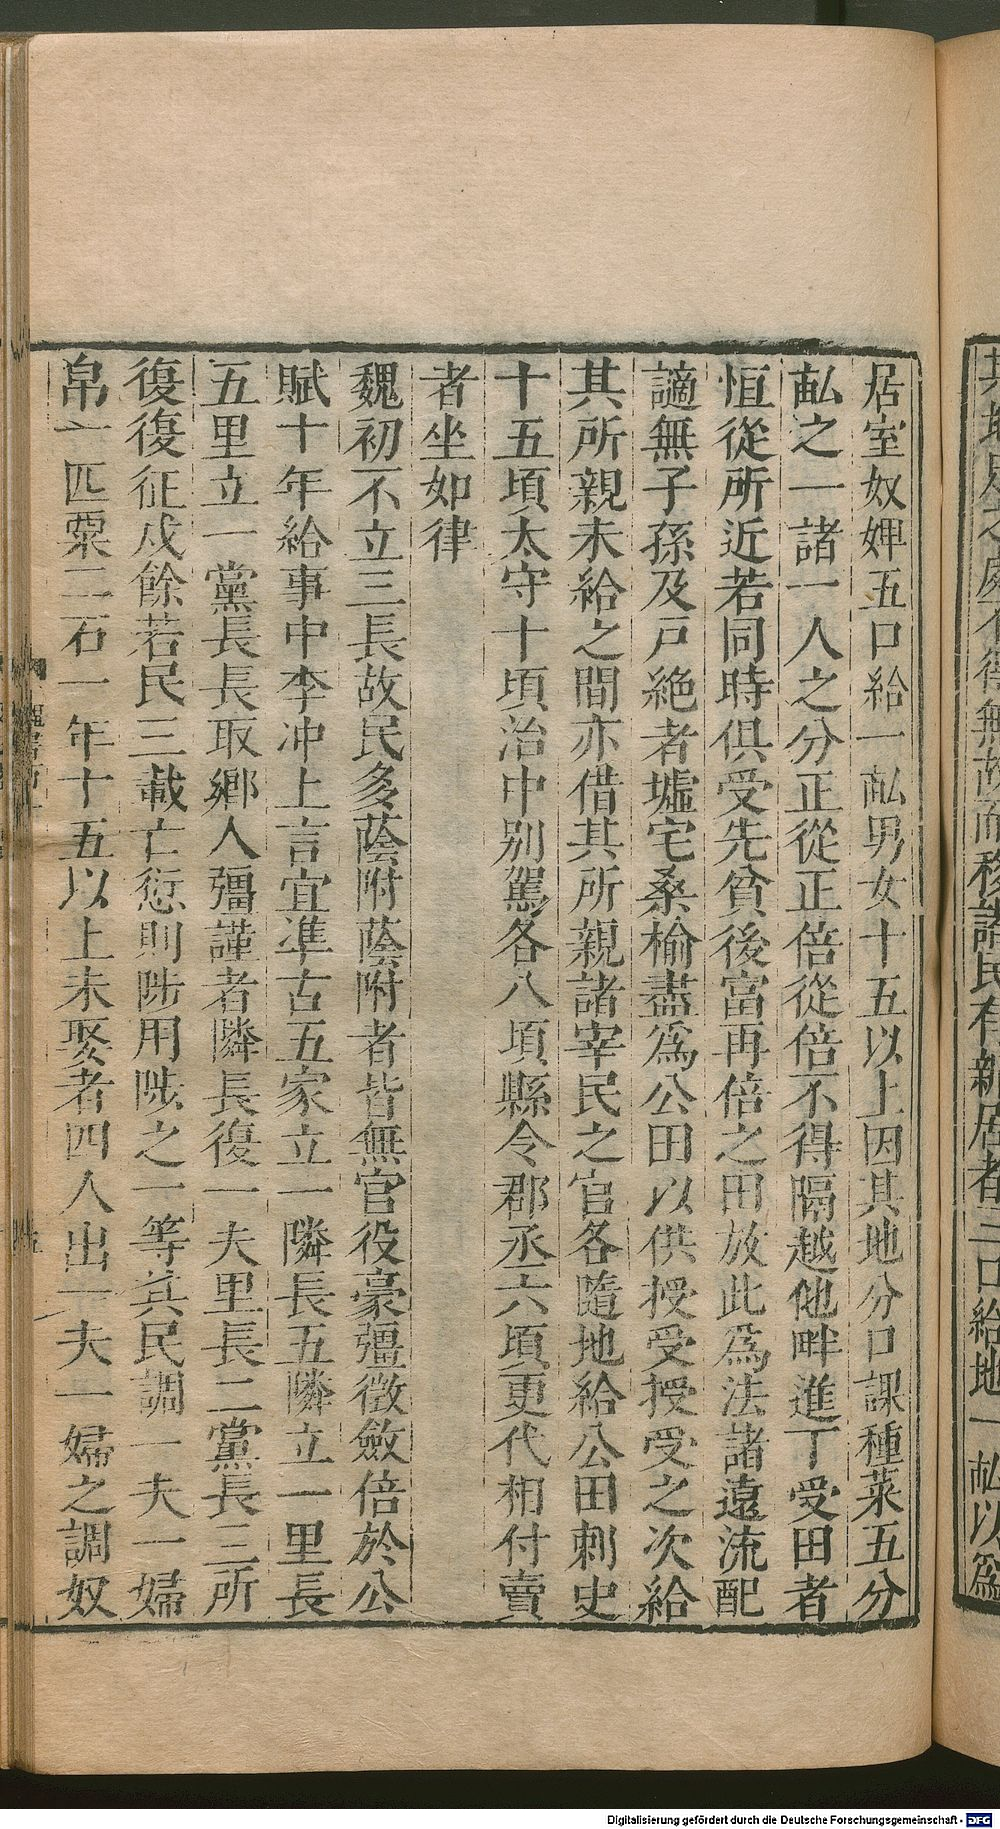 其地足之處不得無故而移諸民有新居者三口給地一畝以爲
居室奴婢五口給一畝男女十五以上因其地分口課種菜五分
畝之一諸一人之分正從正倍從倍不得隔越他畔進丁受田者
恒從所近若同時俱受先貧後富再倍之田放此爲法諸遠流配
讁無子孫及戸絶者墟宅桑榆盡爲公田以供授受授受之次給
其所親未給之間亦借其所親諸宰民之官各隨地給公田刺史
十五頃太守十頃治中别駕各八頃縣令郡丞六頃更代相付賣
者坐如律
魏初不立三長故民多蔭附蔭附者皆無官役豪彊徵斂倍於公
賦十年給事中李冲上言宜凖古五家立一隣長五隣立一里長
五里立一黨長長取鄉人彊謹者隣長復一夫里長二黨長三所
復復征戍餘若民三載亡愆則陟用陟之一等其民調一夫一婦
帛一匹粟二石一年十五以上未娶者四人出一夫一婦之調奴
Digitalisierung gefördert durch die Deutsche Forschungsgemeinschaft - DFG